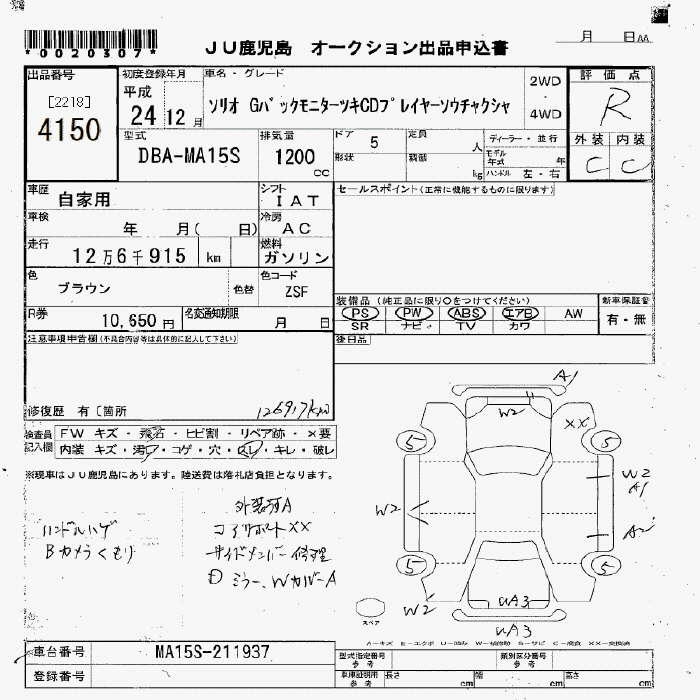 *0020307*
JU鹿児島 オークション出品申込書
月 日AA
出品番号
[2218]
4150
初度登録年月
平成
24 12 月
車名・グレード
ソリオ GバックモニターツキCDプレイヤーソウチャクシャ
2WD
4WD
評価点
R
外装 内装
C C
型式
DBA-MA15S
排気量
1200
cc
ドア 5
定員
人
形状
積載
kg
ディーラー・並行
モデル年式
年
ハンドル 左・右
車歴
自家用
シフト
IAT
セールスポイント(正常に機能するものに限ります)
車検
年 月( 日)
冷房
AC
走行
12万6千915 km
燃料
ガソリン
色
ブラウン
色替
色コード
ZSF
R券
10,650円
名変通知期限
月 日
装備品(純正品に限り○をつけてください)
PS PW ABS エアB AW
SR ナビ TV カワ
新車保証書
有・無
後日品
注意事項申告欄(不具合内容等は具体的に記入して下さい)
修復歴 有〔箇所
126917km
検査員記入欄
FW キズ・飛石・ヒビ割・リペア跡・×要
内装 キズ・汚レ・コゲ・穴・スレ・キレ・破レ
※現車はJU鹿児島にあります。陸送費は落札店負担となります。
ハンドルハゲ
Bカメラくもり
外装キズA
コアサポートXX
サイドメンバー修理
Dミラー、WカバーA
A1
W2
XX
5
5
W2
A1
W2
A2
5
5
W2
UA3
UA3
スペア
A-キズ E-エクボ U-凹み W-補修跡 S-サビ C-腐食 XX-交換済
車台番号
MA15S-211937
登録番号
型式指定番号
参考
類別区分番号
参考
車庫証明用
参考
長さ
cm
幅
cm
高さ
cm